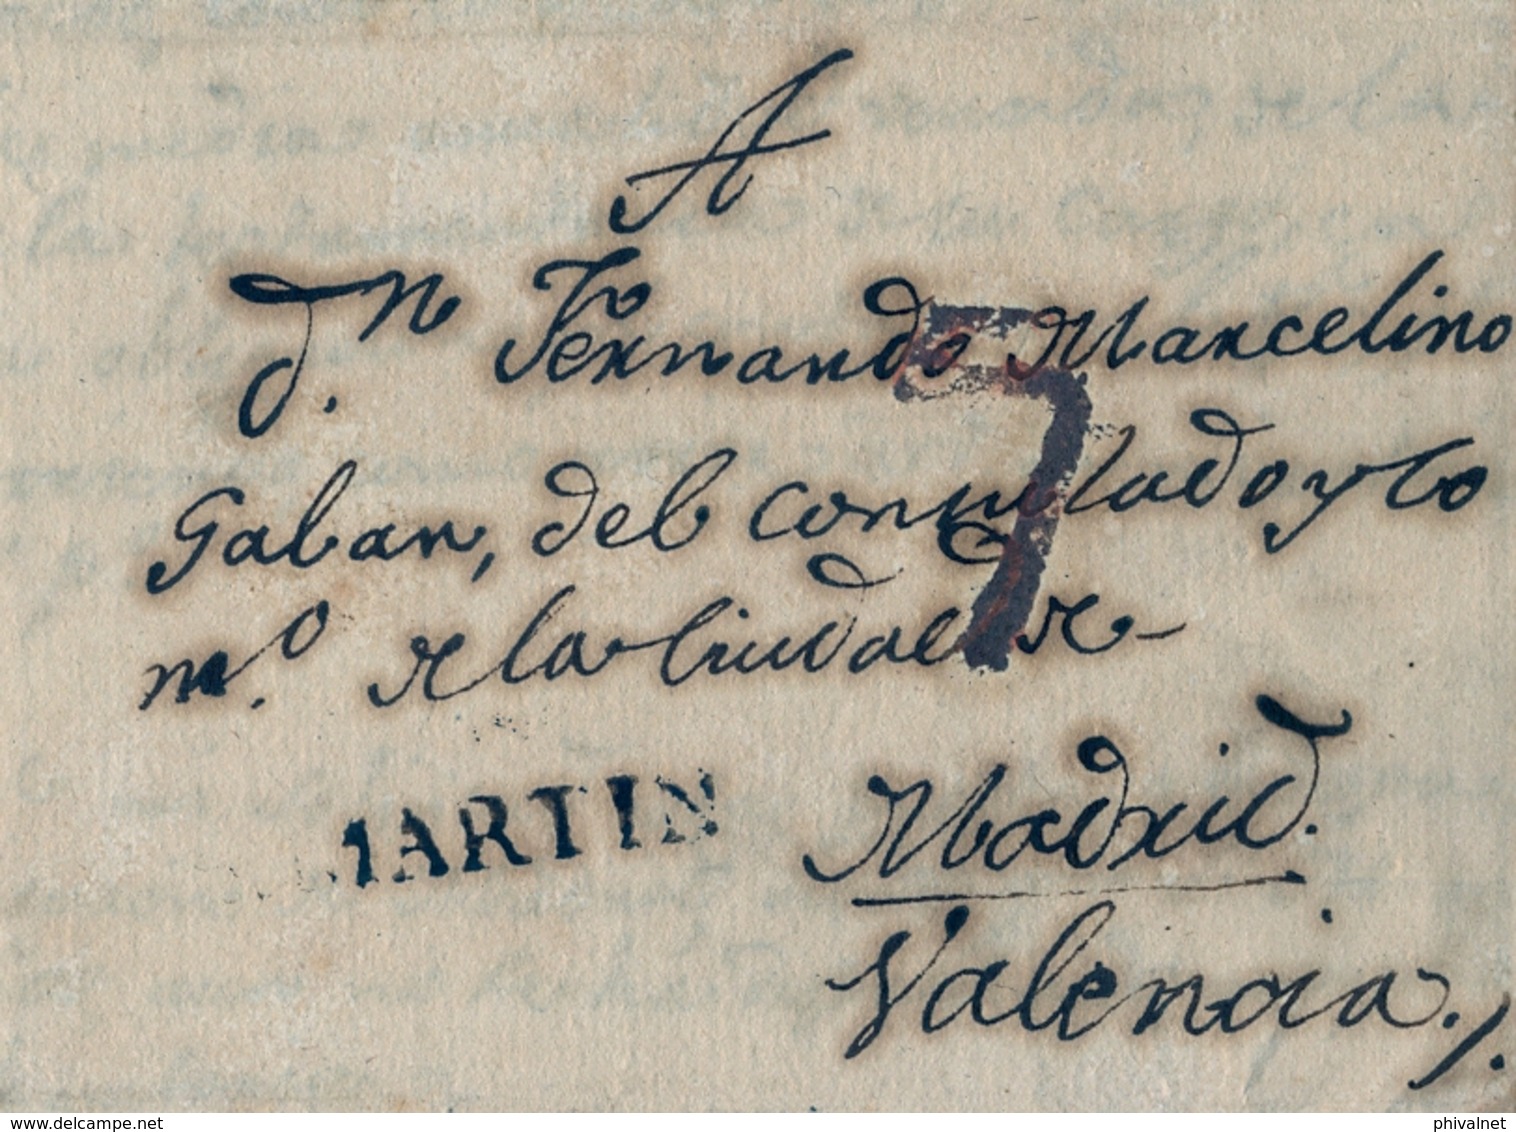 A
Dn. Fernando Marcelino
Galvan, del Consulado y co
mo. de la Ciudad de
MARTIN
Madrid.
Valencia.
delcampe.net
phivalnet